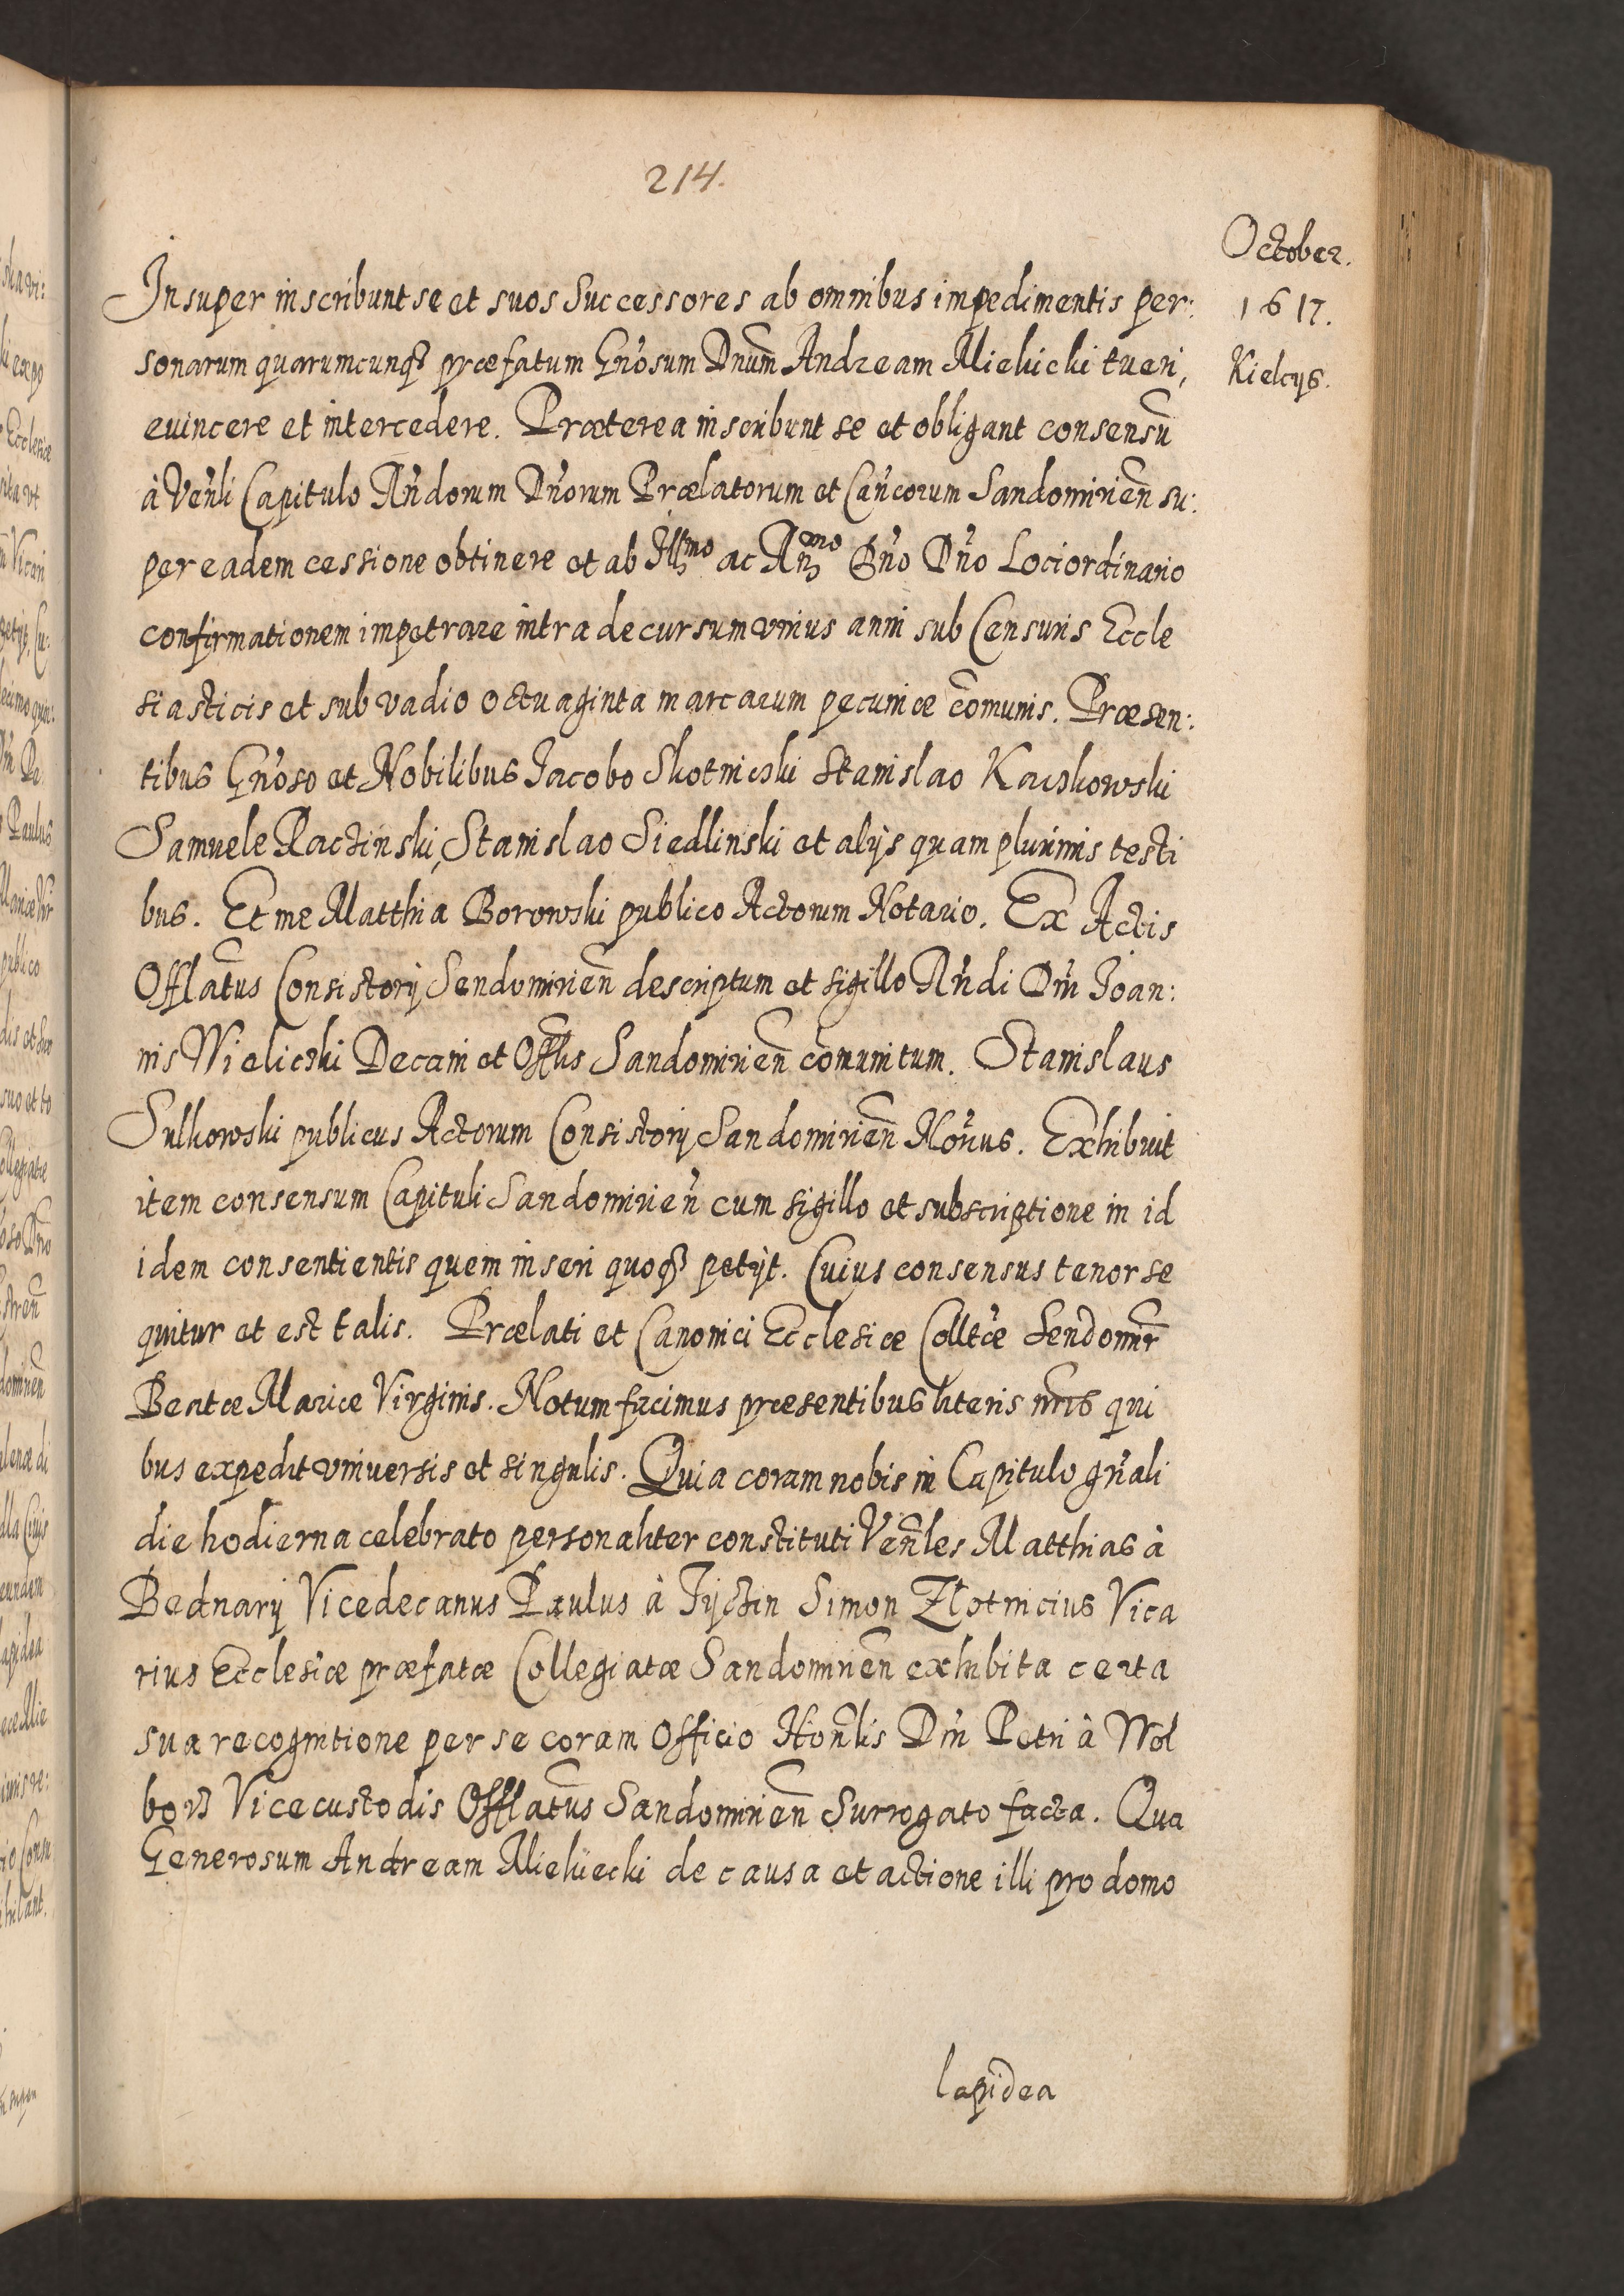 214.
October.
1617.
Kielcys.
Insuper inscribunt se et suos Successores ab omnibus impedimentis per:
sonarum quarumcunq₃ præfatum Gn̄osum Dnūm Andream Mieluicki tueri,
euincere et intercedere. Præterea inscribunt se et obligant consensū
à Ven̄li Capitulo Rn̄dorum Dn̄orum Prælatorum et Can̄corum Sandomirien̄ su:
per eadem cessione obtinere et ab Illmo ac Rn̄mo Dn̄o Dn̄o Loci ordinario
confirmationem impetrare intra decursum vnius anni sub Censuris Eccle
siasticis et sub vadio octuaginta marcarum pecuniæ com̄unis. Præsen:
tibus Gn̄oso et Nobilibus Jacobo Skotnicski Stanislao Karskowski
Samuele Raczinski, Stanislao Siedlinski et alijs quam plurimis testi
bus. Et me Matthia Borowski publico Actorum Notario. Ex Actis
Offlātus Consistorij Sendomirien̄ descriptum et sigillo Rn̄di Dn̄i Joan:
nis Wieliczki Decani et Offlīs Sandomirien̄ com̄unitum. Stanislaus
Sulkowski publicus Actorum Consistorij Sandomirien̄ No͞rius. Exhibuit
item consensum Capituli Sandomirien̄ cum sigillo et subscriptione in id
idem consentientis quem inseri quoq₃ petijt. Cuius consensus tenor se
quitur et est talis. Prælati et Canonici Ecclesiæ Colltǣ Sendomir̄
Beatæ Mariæ Virginis. Notum facimus præsentibus literis nr̄is qui
bus expedit vniuersis et singulis. Quia coram nobis in Capitulo gn̄ali
die hodierna celebrato personaliter constituti Ven̄les Matthias à
Bednary Vicedecanus Paulus à Tyczin Simon Zlotnicius Vica
rius Ecclesiæ præfatæ Collegiatæ Sandomirien̄ exhibita certa
sua recognitione per se coram Officio Hon̄lis Dn̄i Petri à Wol
borz Vicecustodis Offlātus Sandomirien̄ Surrogato facta. Qua
Generosum Andream Mieluecki de causa et actione illi pro domo
lapidea